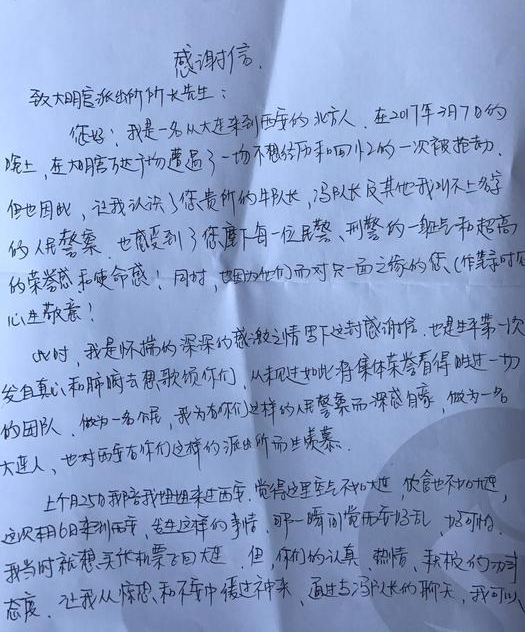 感谢信.
致大明宫派出所所长先生：
您好！我是一名从大连来到西安的北方人．在2017年3月7日的
晚上，在大明宫万达广场遭遇了一场不想经历和回忆的一次被抢劫．
但也因此，让我认识了您贵所的牛队长，冯队长及其他我叫不上名字
的人民警察．也感受到了您麾下每一位民警、刑警的一躯和超高
的荣誉感和使命感！同时，也因为他们而对只一面之缘的您(作笔录时见
心生敬意！
此时，我是怀揣的深深的感激之情写下这封感谢信．也是生平第一次
发自真心和肺腑去想歌颂你们，从未见过如此将集体荣誉看得胜过一切
的团队．做为一名公民，我为有你们这样的人民警察而深感自豪，做为一名
大连人，也对西安有你们这样的派出所而生羡慕．
上个月25日我陪我姐姐来过西安．觉得这里空气不如大连，饮食也不如大连，
这次本月6日来到西安，发生这样的事情．那一瞬间觉西安好乱，好可怕．
我当时就想买张机票飞回大连．但，你们的认真、热情、积极的
态度．让我从惊恐、和不安中缓过神来．通过与冯队长的聊天，我可以